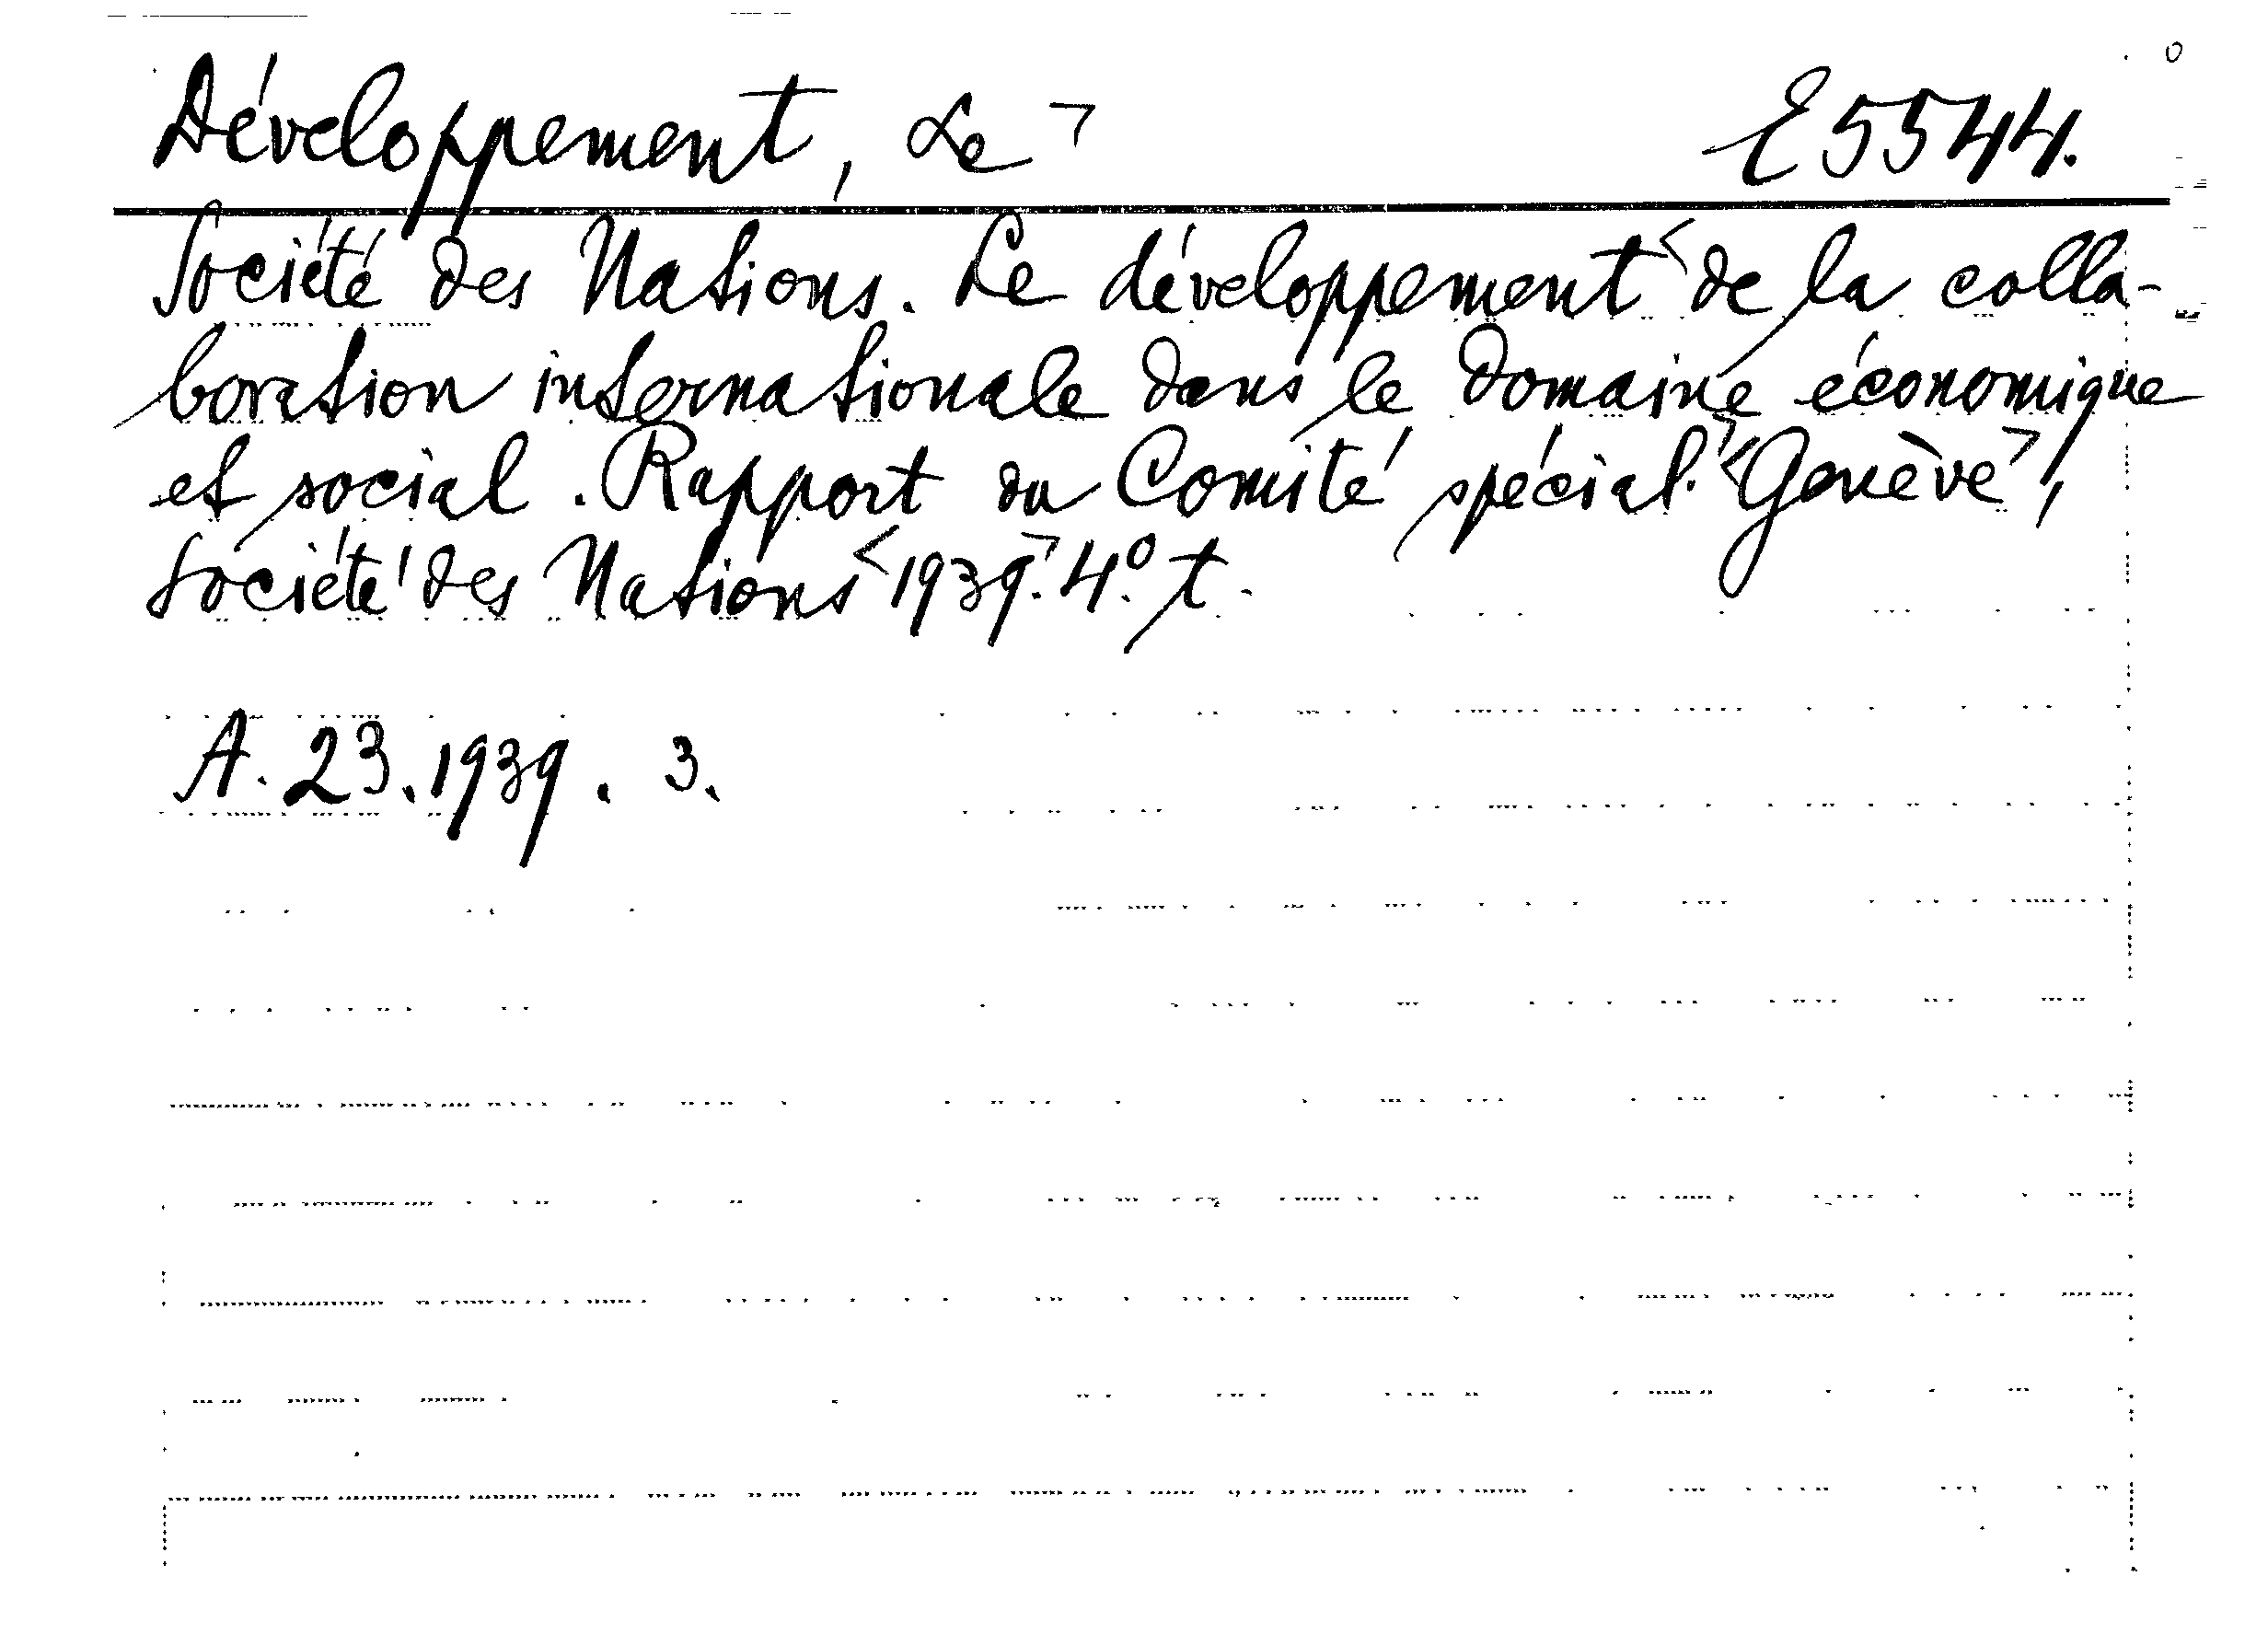 Développement, Le ¬ E 5544.
Société des Nations. Le développement < de la colla-
boration internationale dans le domaine économique
et social. Rapport du Comité spécial.¬ <Genève¬,
Société des Nations < 1939.¬ 4.º t.
A. 23. 1939. 3.